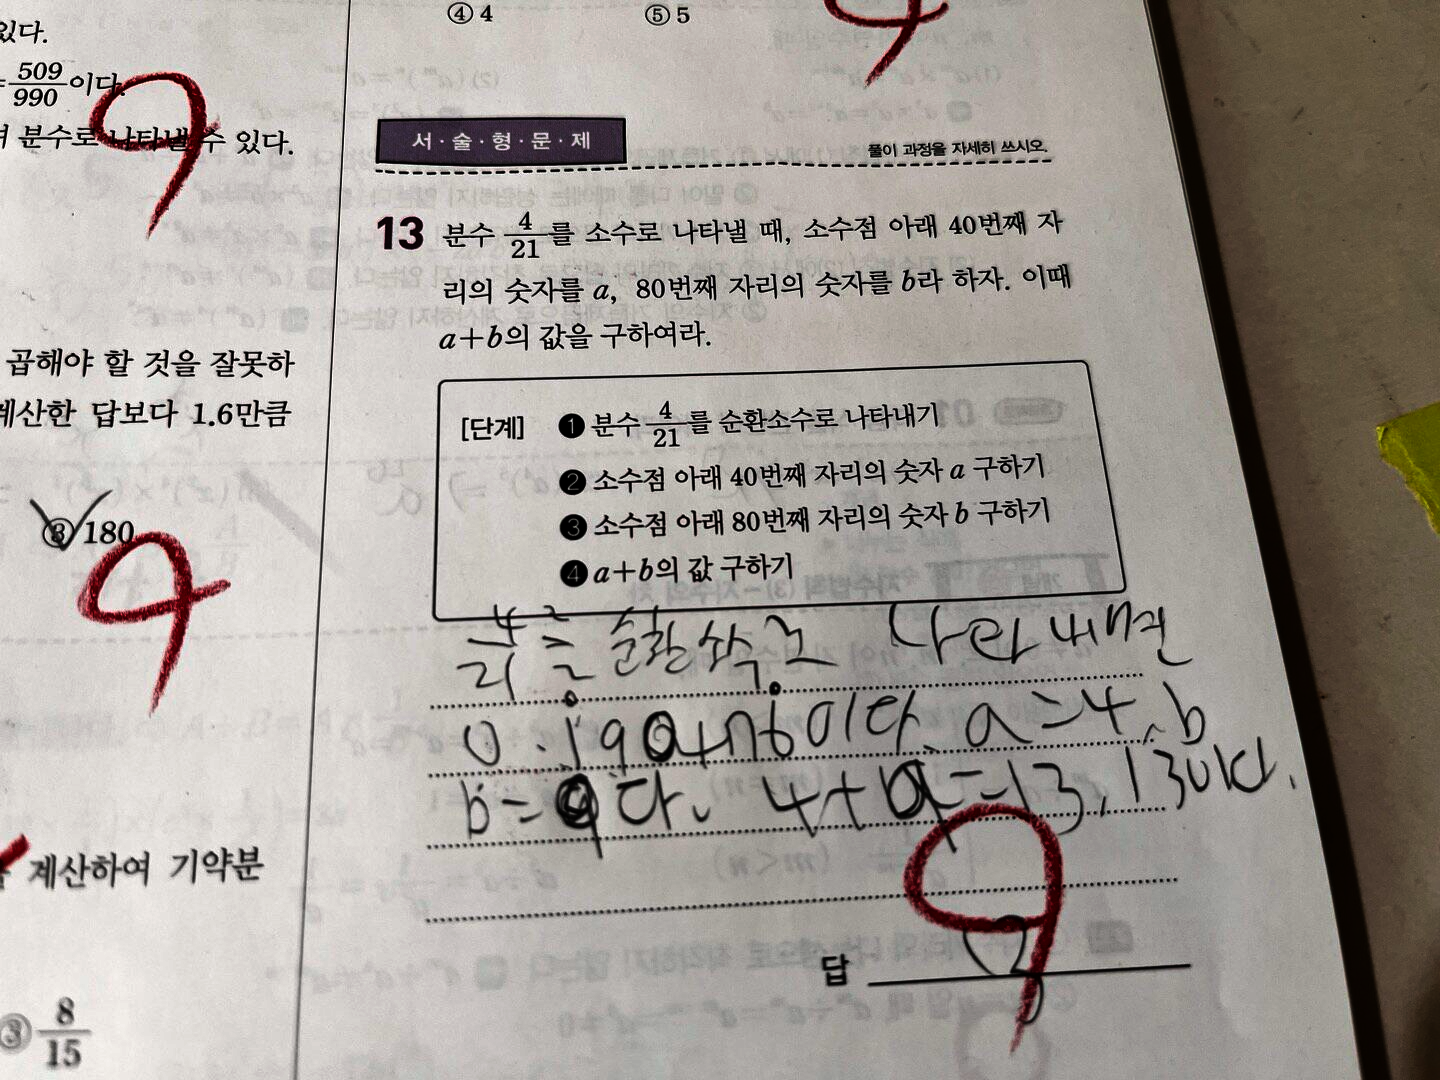 있다.
=509/990이다.
분수로 나타낼 수 있다.
곱해야 할 것을 잘못하
계산한 답보다 1.6만큼
③ 180
계산하여 기약분
③ 8/15
④ 4 ⑤ 5
서·술·형·문·제
풀이 과정을 자세히 쓰시오.
13 분수 4/21를 소수로 나타낼 때, 소수점 아래 40번째 자
리의 숫자를 a, 80번째 자리의 숫자를 b라 하자. 이때
a+b의 값을 구하여라.
[단계] ❶ 분수 4/21를 순환소수로 나타내기
❷ 소수점 아래 40번째 자리의 숫자 a 구하기
❸ 소수점 아래 80번째 자리의 숫자 b 구하기
❹ a+b의 값 구하기
4/21를 순환소수로 나타내면
이다. a=4, b
b=9다. 4+9=13, 13이다.
답